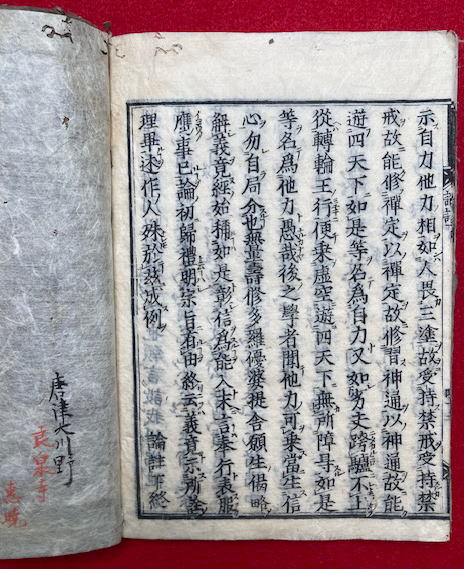 示自力他力相如人畏三塗故受持禁戒受持禁
戒故能修禪定以禪定故修習神通以神通故能
遊四天下如是等名爲自力又如劣夫跨驢不上
從轉輪王行便乘虛空遊四天下無所障㝵如是
等名爲他力愚哉後之學者聞他力可乘當生信
心勿自局分也無量壽修多羅優婆提舍願生偈略
解義竟經始稱如是彰信爲能入末言奉行表服
膺事已論初歸禮明宗旨有由終云義竟示所詮
理畢述作人殊於茲成例 論註下終
唐津大川野
良泉寺